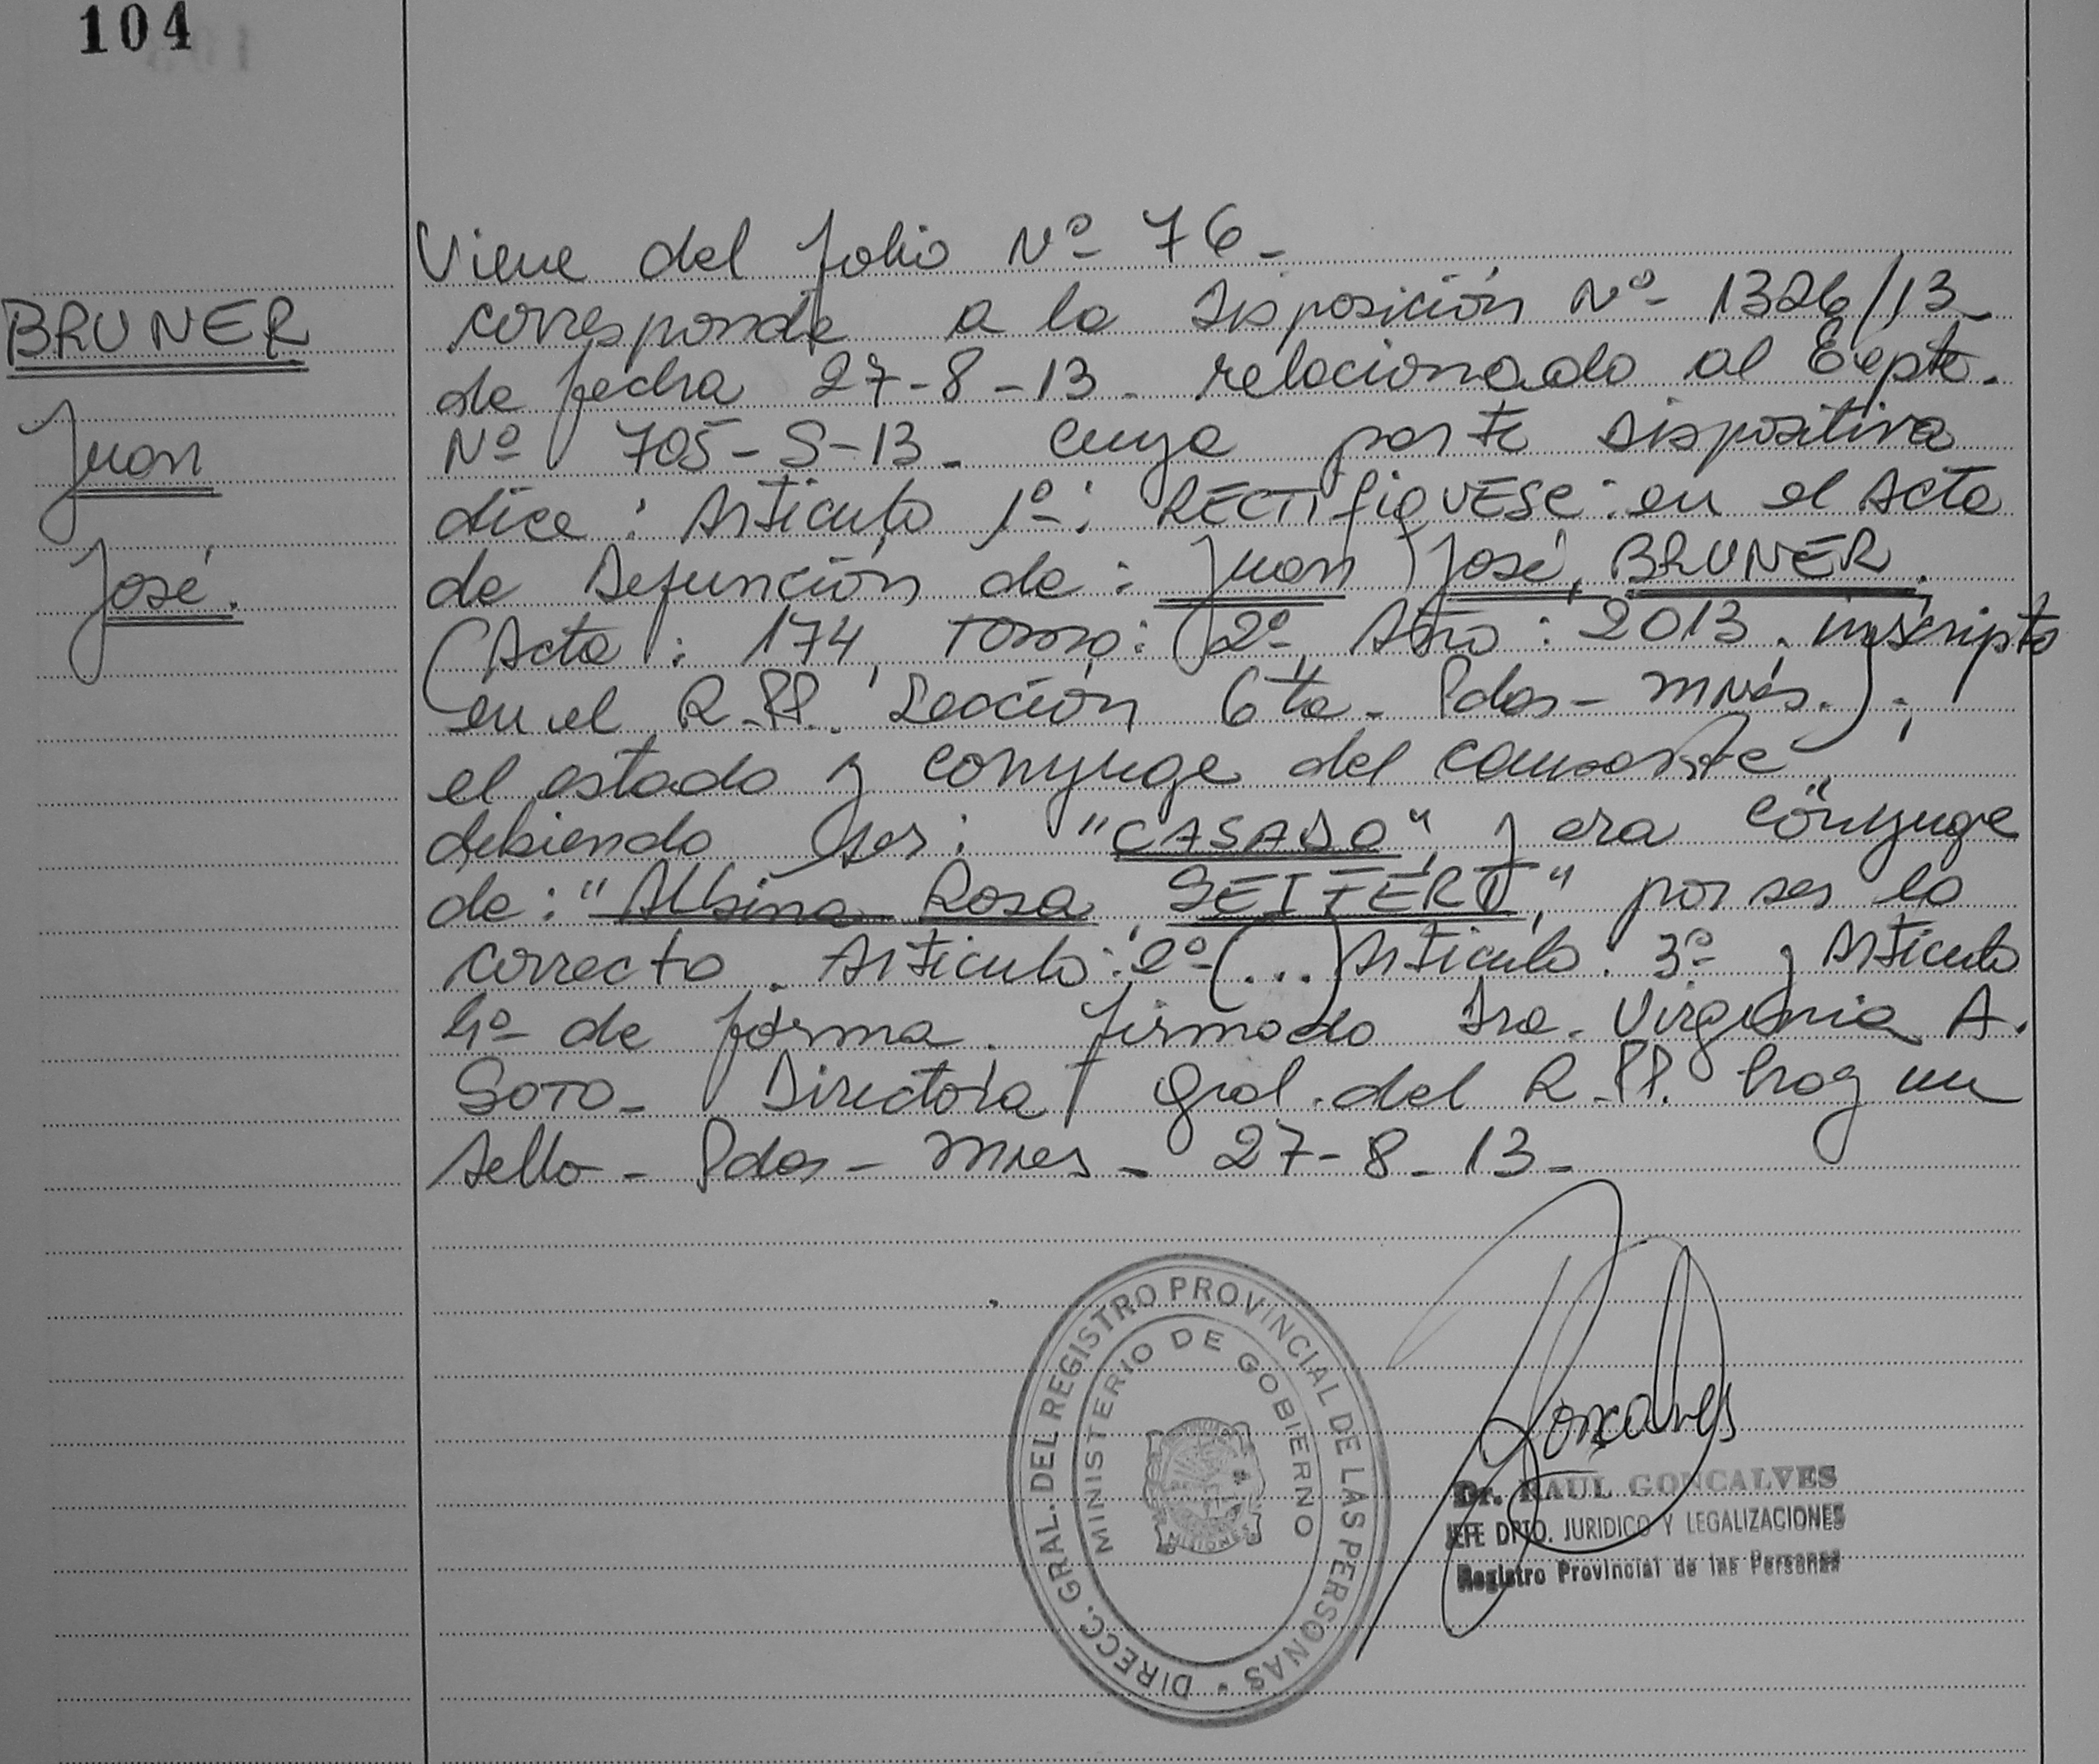 104
BRUNER
Juan
José.
Viene del folio Nº 76-
corresponde a la Disposición Nº 1326/13-
de fecha 27-8-13- relacionado al Expte.
Nº 705-S-13- cuya parte dispositiva
dice: Artículo 1º: RECTIFIQUESE: en el Acta
de Defunción de: Juan José, BRUNER.
(Acta: 174, Tomo: 2º, Año: 2013. inscripto
en el R.PP. Sección 6ta- Pdas- Mnes.).
el estado y conyuge del causante,
debiendo ser: "CASADO", y era cónyuge
de: "Albina Rosa SEIFERT," por ser lo
correcto. Artículo: 2º (...) Artículo: 3º y Artículo
4º de forma. firmado Dra. Virginia A.
SOTO- Directora Gral. del R.PP. hay un
sello- Pdas- Mnes- 27-8-13-
DIRECC. GRAL. DEL REGISTRO PROVINCIAL DE LAS PERSONAS
MINISTERIO DE GOBIERNO
MISIONES
Goncalves
Dr. RAUL GONCALVES
JEFE DPTO. JURIDICO Y LEGALIZACIONES
Registro Provincial de las Personas